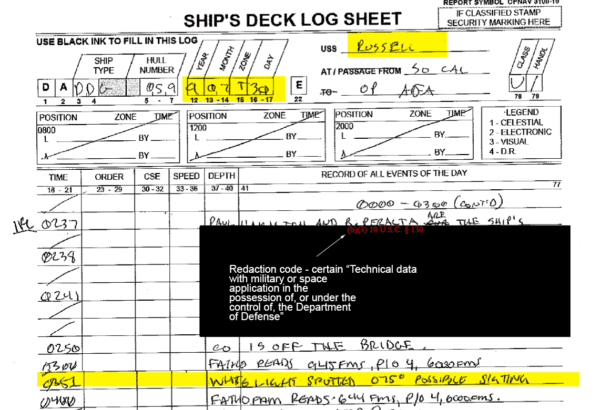 REPORT SYMBOL OPNAV 3100-10
SHIP'S DECK LOG SHEET
IF CLASSIFIED STAMP
SECURITY MARKING HERE
USE BLACK INK TO FILL IN THIS LOG
USS RUSSELL
SHIP TYPE
HULL NUMBER
YEAR
MONTH
ZONE
DAY
CLASS
HANDL
AT / PASSAGE FROM SO CAL
D A D D G 059 9 07 T 30 E U
TO OP AREA
1 2 3 4 5 - 7 12 13 - 14 15 16 - 17 22 78 79
POSITION ZONE TIME
0800
L BY
λ BY
POSITION ZONE TIME
1200
L BY
λ BY
POSITION ZONE TIME
2000
L BY
λ BY
·LEGEND
1 - CELESTIAL
2 - ELECTRONIC
3 - VISUAL
4 - D.R.
TIME ORDER CSE SPEED DEPTH RECORD OF ALL EVENTS OF THE DAY
18 - 21 23 - 29 30-32 33-36 37- 40 41 77
0000 - 0300 (CONT'D)
0237 AND R. PERALTA ARE THE SHIP'S
(b)(1) 10 U.S.C. § 130
0238
Redaction code - certain “Technical data
with military or space
application in the
possession of, or under the
control of, the Department
of Defense”
0241
0250 CO IS OFF THE BRIDGE.
0300 FATHO READS 945 FMS, P/O 4, 6000 FMS
0351 WHITE LIGHT SPOTTED 075° POSSIBLE SIGTING
0400 READS 644 FMS, P/O 4, 6000 FMS.